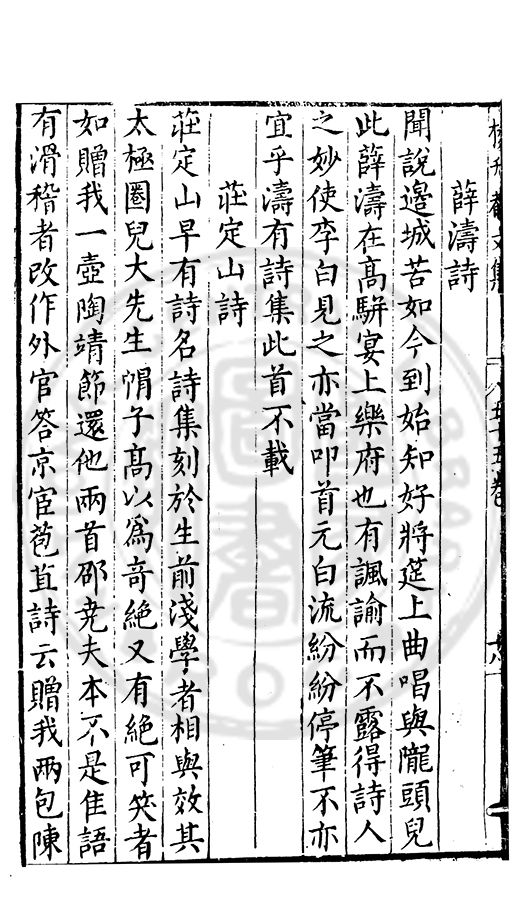 薛濤詩
聞說邊城苦如今到始知好將筵上曲唱與隴頭兒
此薛濤在高駢宴上樂府也有諷諭而不露得詩人
之妙使李白見之亦當叩首元白流紛紛停筆不亦
宜乎濤有詩集此首不載
莊定山詩
莊定山早有詩名詩集刻於生前淺學者相與效其
太極圈兒大先生帽子高以為奇絕又有絕可笑者
如贈我一壺陶靖節還他兩首邵堯夫本不是佳語
有滑稽者改作外官答京宦苞苴詩云贈我兩包陳